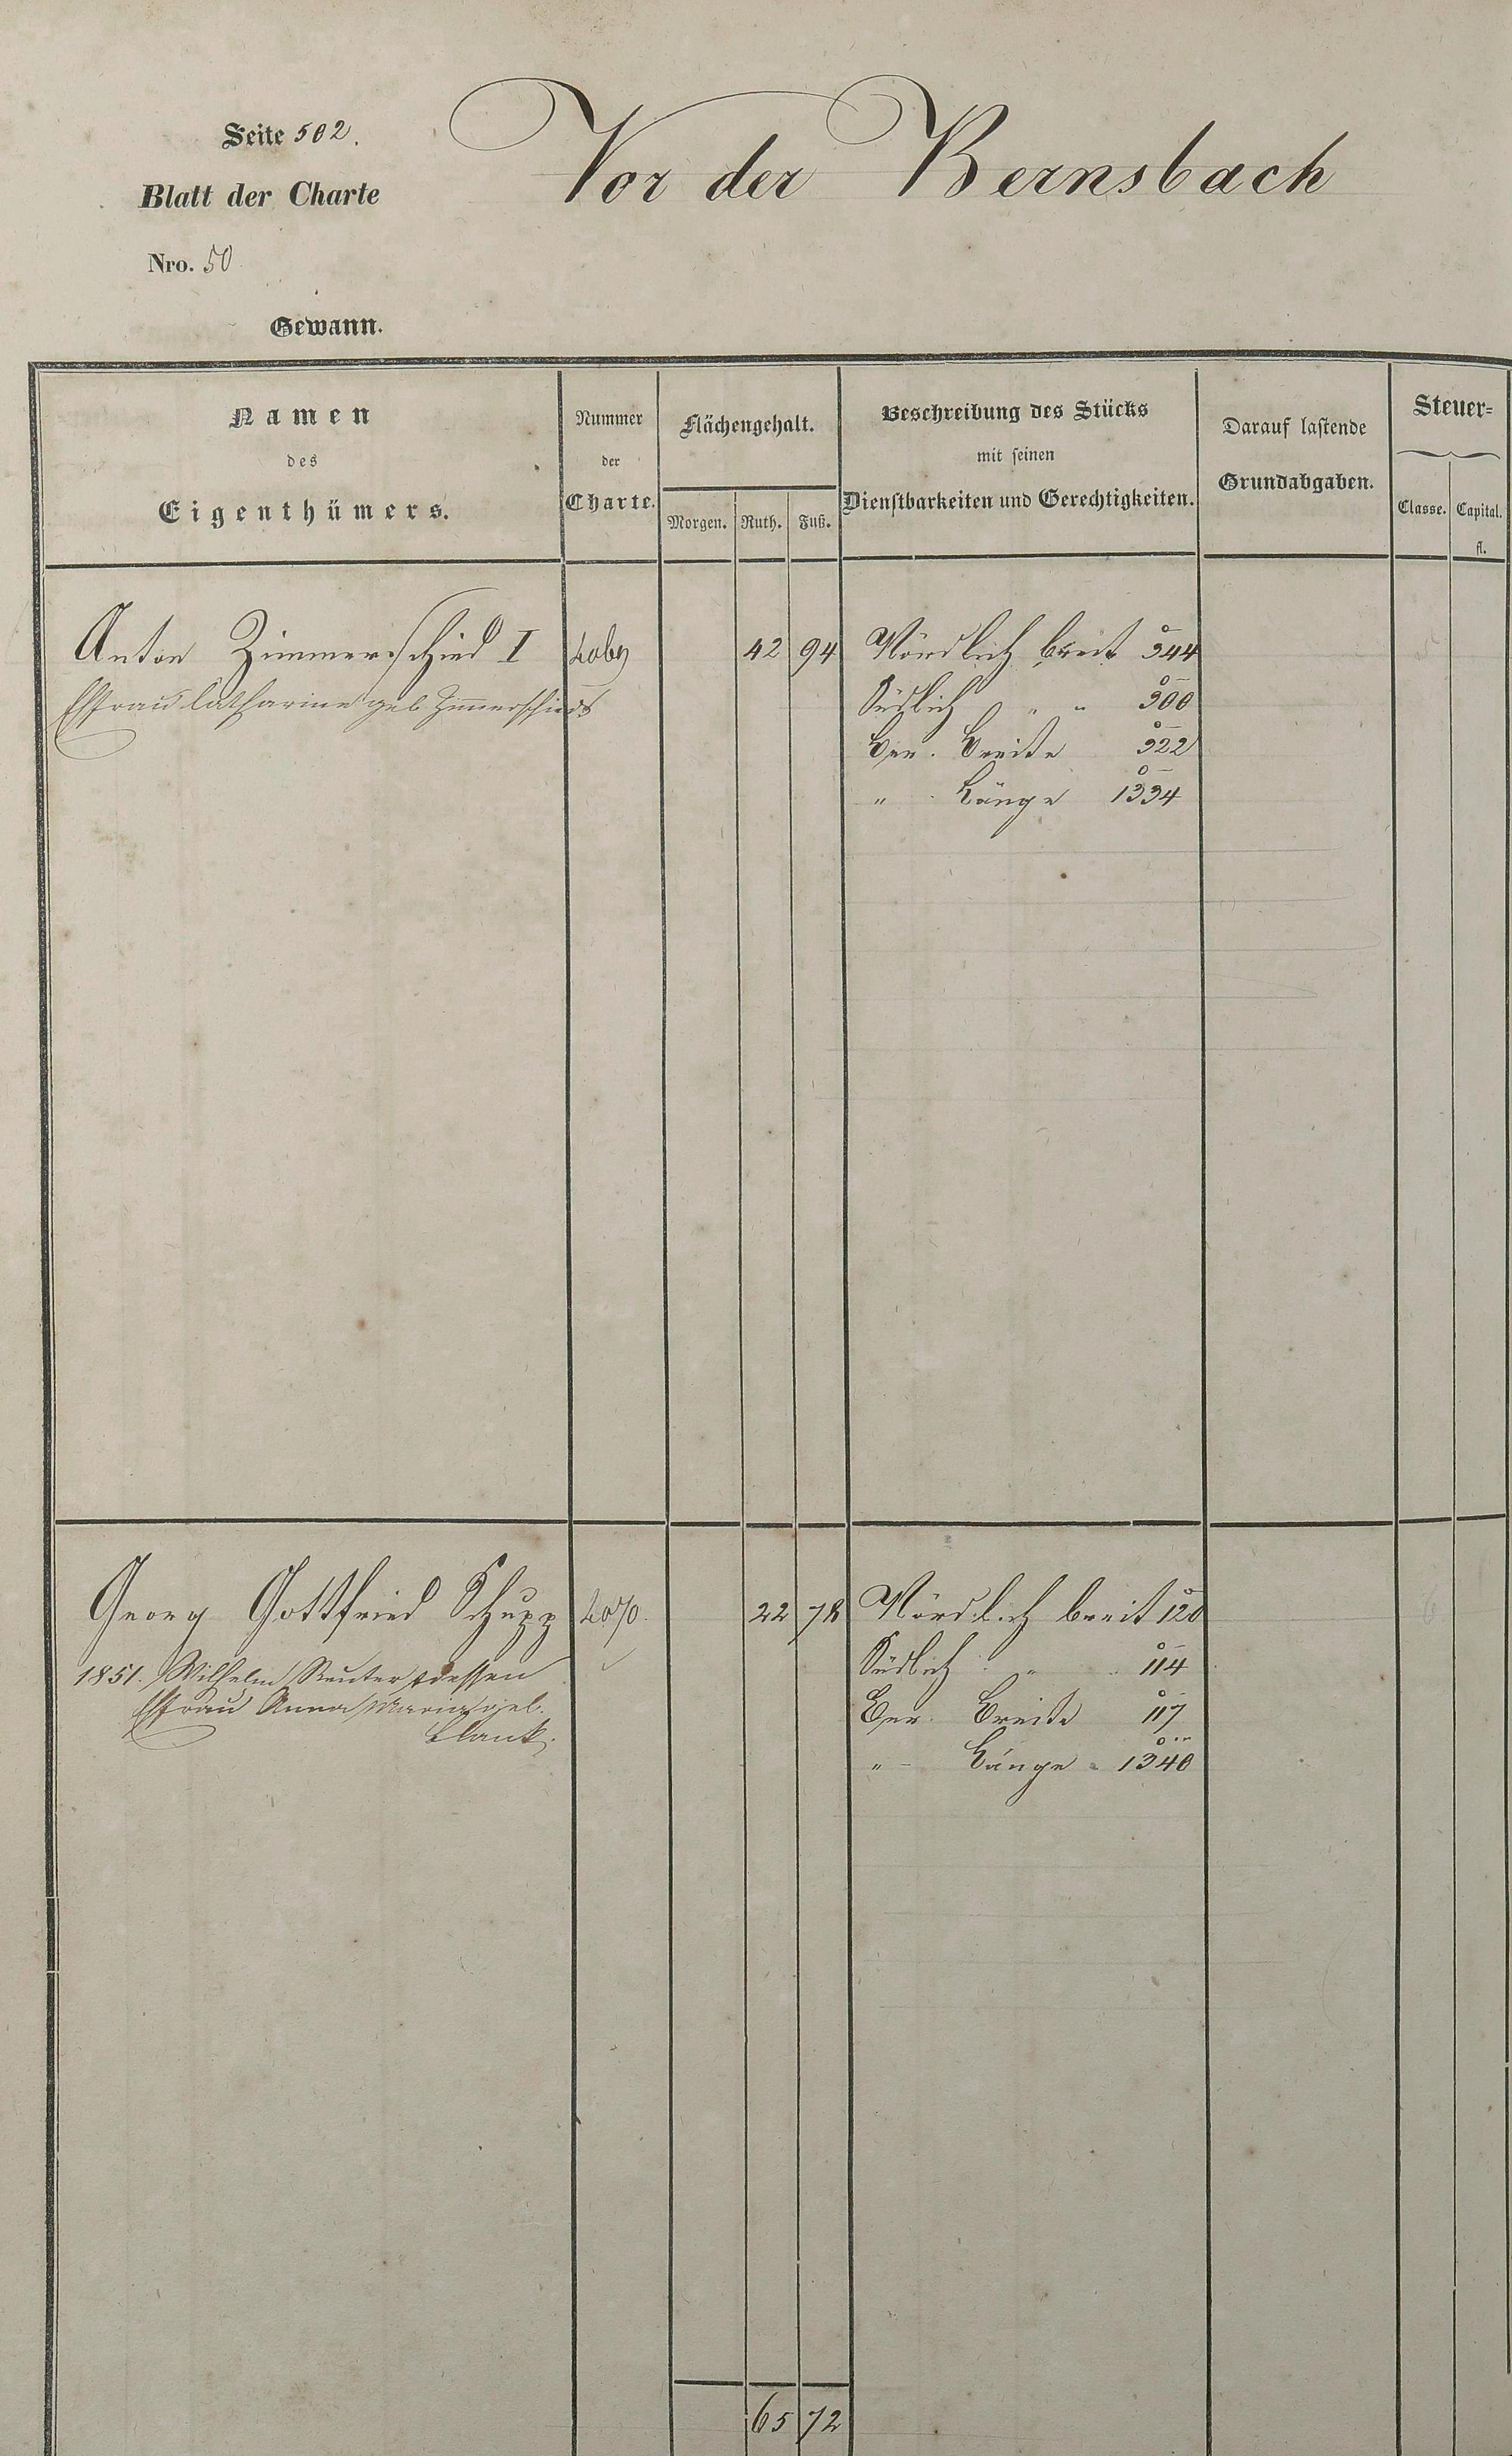 Seite 502.
Blatt der Charte
Nro. 50
Gewann.
Vor der Bernsbach
Namen
des
Eigenthümers.
Nummer
der
Charte.
Flächengehalt.
Morgen. Ruth. Fuß.
Beschreibung des Stücks
mit seinen
Dienstbarkeiten und Gerechtigkeiten.
Darauf lastende
Grundabgaben.
Steuer-
Classe. Capital.
fl.
Anton Zimmerschied I 4069 42 94 Nördlich breit 344
Ehfrau Catharine geb Zimmerschied Südlich " " 300
Ger. Breite 322
" Länge 1334
Georg Gottfried Schupp 4070. 22 78 Nördlich breit 120
1851. Wilhelm Reuter u dessen Südlich " 114
Ehfrau Anna Maria geb. Ger. Breite 117
Blank. " Länge 1340
65 72